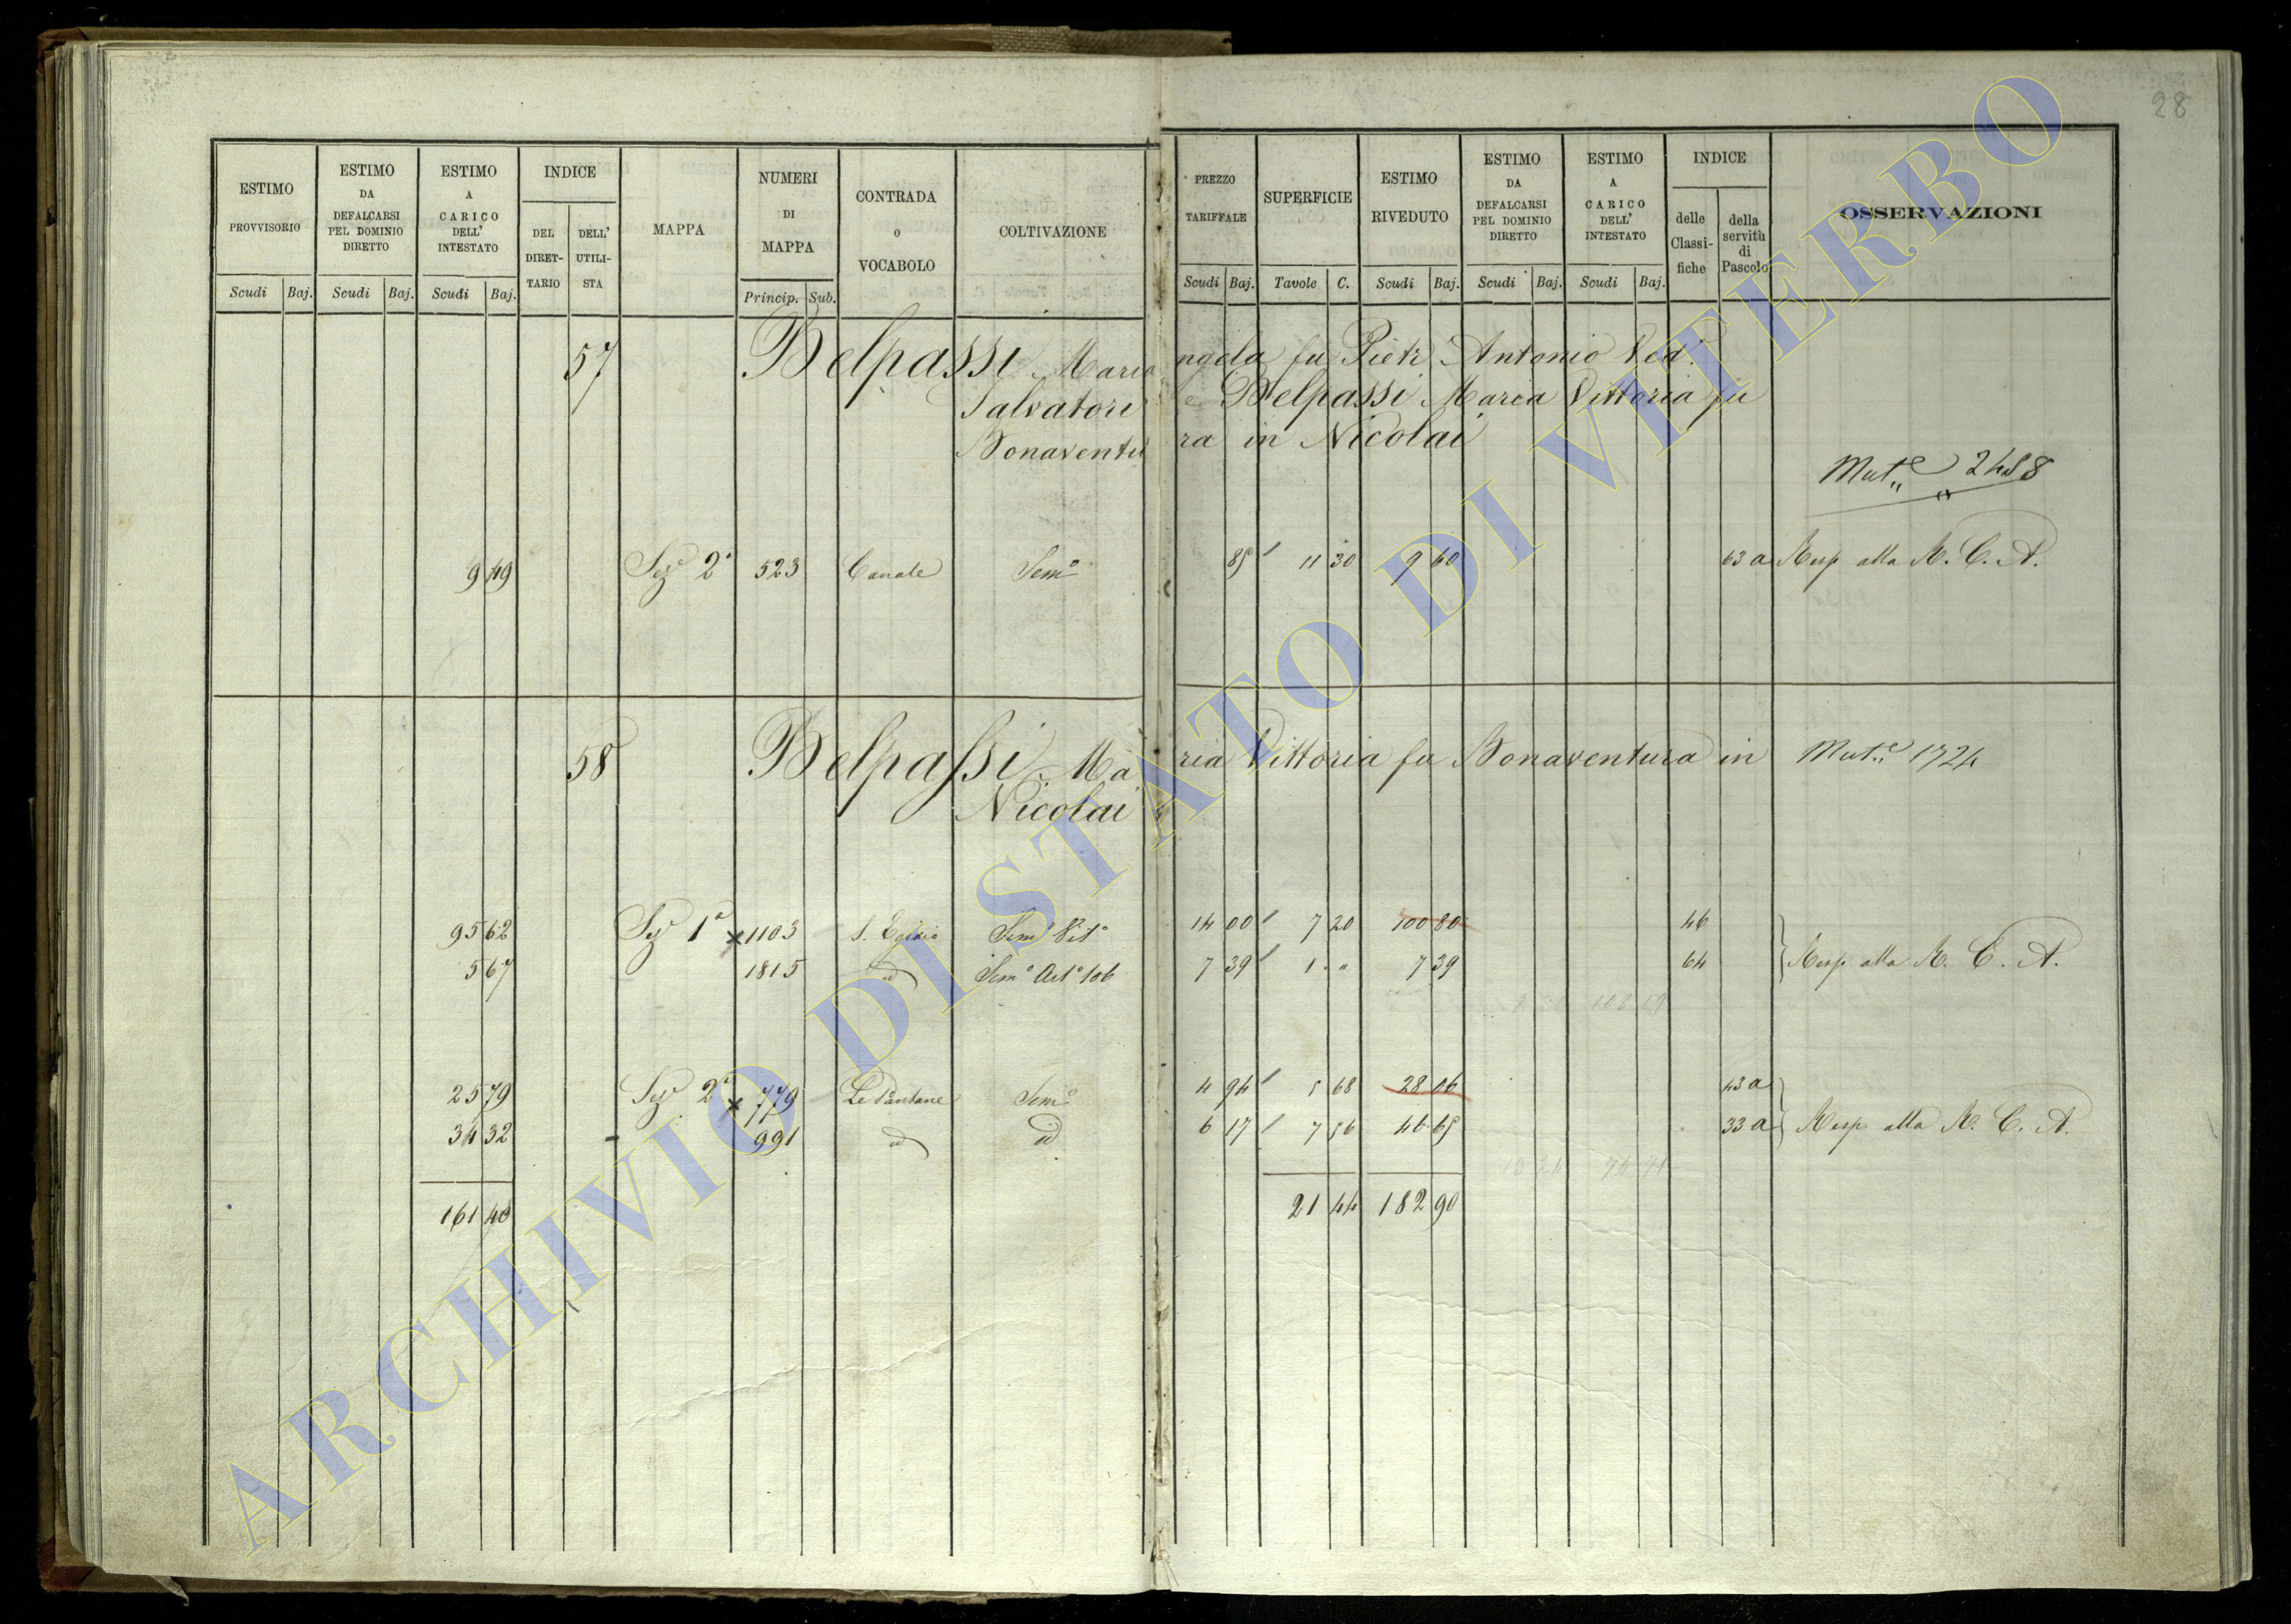 28
ESTIMO PROVVISORIO
ESTIMO DA DEFALCARSI PEL DOMINIO DIRETTO
ESTIMO A CARICO DELL' INTESTATO
INDICE
DEL DIRET-TARIO
DELL' UTILI-STA
MAPPA
NUMERI DI MAPPA
CONTRADA O VOCABOLO
COLTIVAZIONE
PREZZO TARIFFALE
SUPERFICIE
ESTIMO RIVEDUTO
ESTIMO DA DEFALCARSI PEL DOMINIO DIRETTO
ESTIMO A CARICO DELL' INTESTATO
INDICE
delle Classi-fiche
della servitù di Pascolo
OSSERVAZIONI
Scudi Baj. Scudi Baj. Scudi Baj. Princip. Sub. Scudi Baj. Tavole C. Scudi Baj. Scudi Baj. Scudi Baj.
57 Belpassi Maria ngela fu Pietr Antonio Ved.
Salvatori e Belpassi Maria Vittoria fu
Bonaventu ra in Nicolai
Mut.e 2488
9 49 Sez.e 2a 523 Canale Sem.o 85 11 30 9 60 63 a Resp alla R. C. A.
58 Belpassi Ma ria Vittoria fu Bonaventura in Mut.e 1724
Nicolai
95 62 Sez.e 1a x 1103 S. Egidio Sem.o Vit.o 14 00 7 20 100 80 46
5 67 1815 id Sem.o 7 39 1 " 7 39 64 Resp alla R. C. A.
25 79 Sez.e 2a x 779 Le Pantane Sem.o 4 94 5 68 28 06 43 a
34 32 991 id id 6 17 7 56 46 65 33 a Resp alla R. C. A.
161 40 21 44 182 90
ARCHIVIO DI STATO DI VITERBO